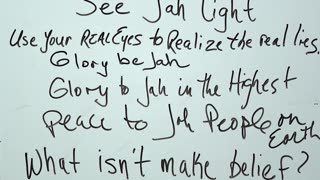 See Jah light
Use Your REALEyes to Realize the real lies.
Glory be Jah
Glory to Jah in the Highest
Peace to Jah People on Earth
What isn't make belief?